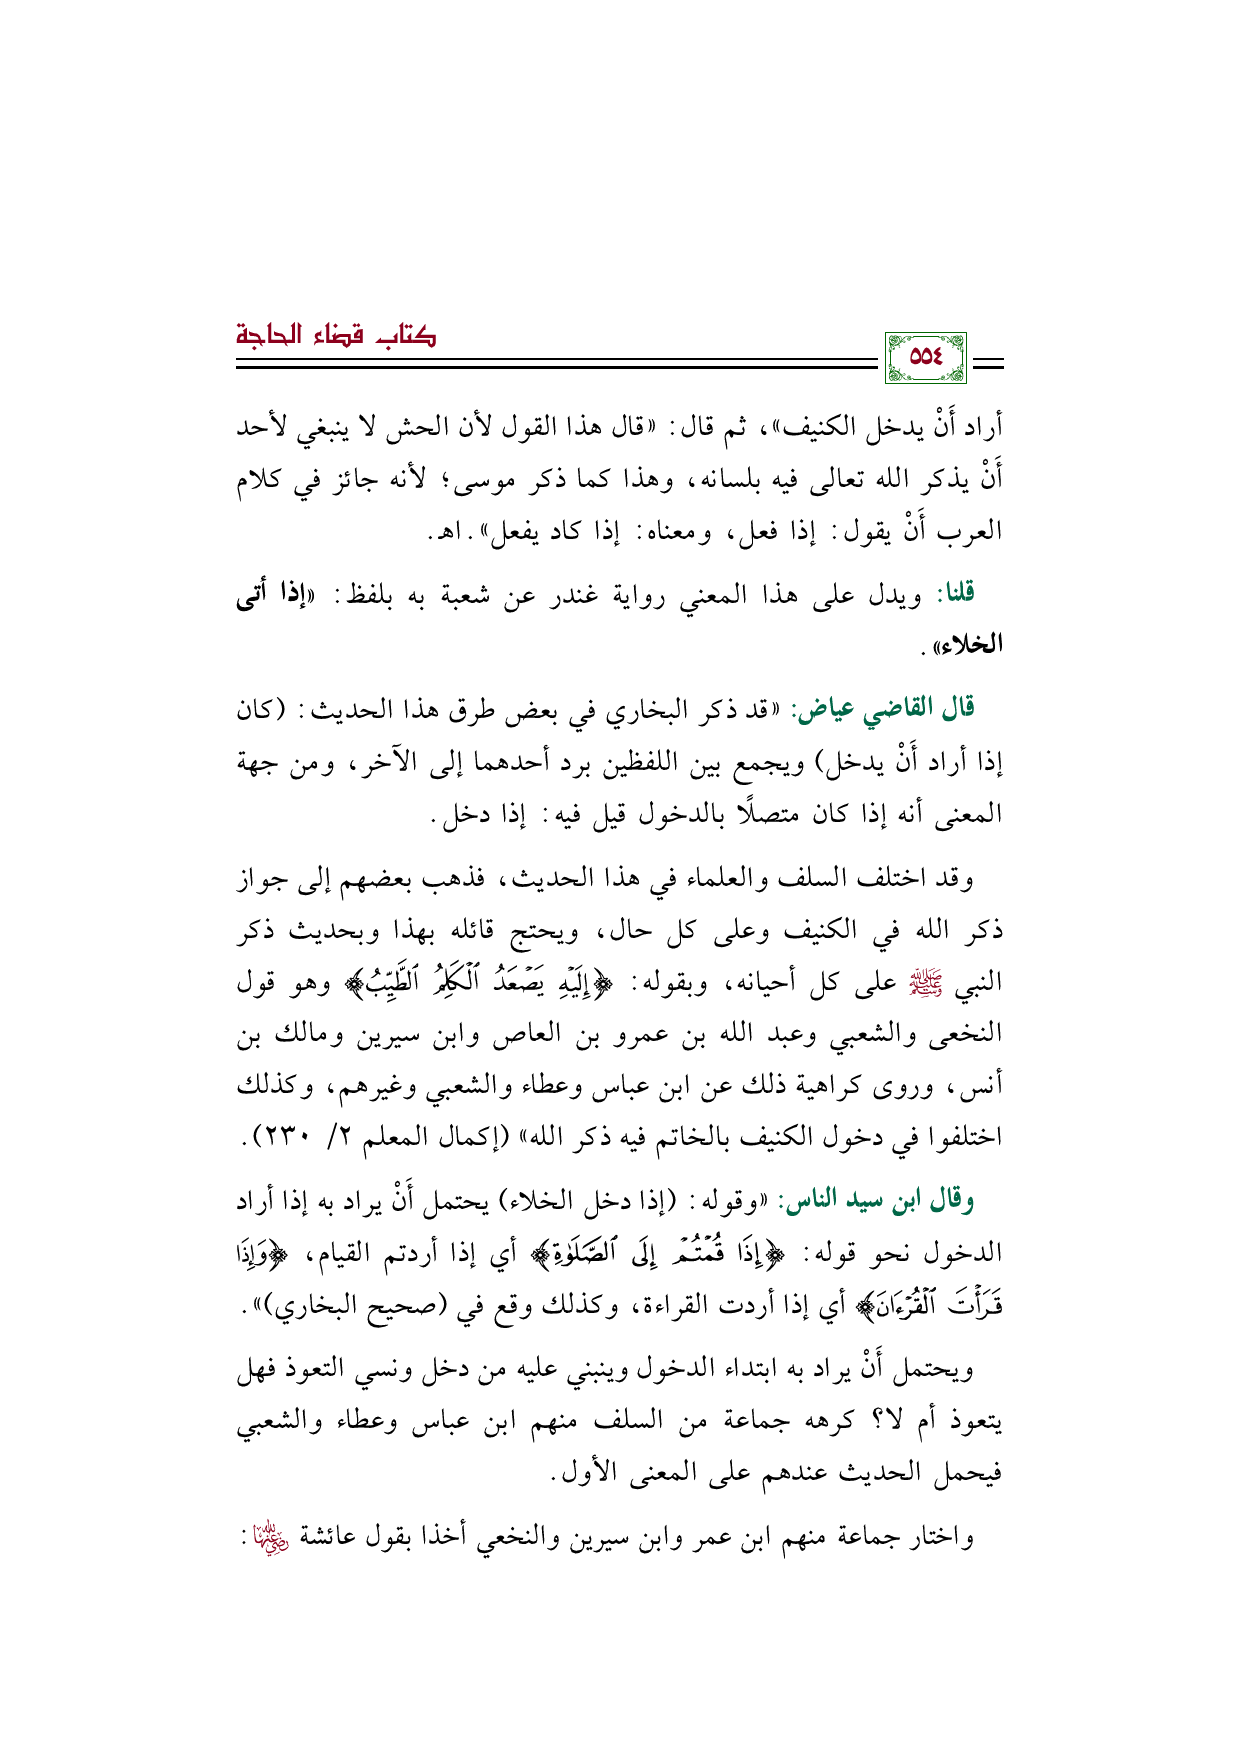 كتاب قضاء الحاجة
٥٥٤
أراد أَنْ يدخل الكنيف»، ثم قال: «قال هذا القول لأن الحش لا ينبغي لأحد
أَنْ يذكر الله تعالى فيه بلسانه، وهذا كما ذكر موسى؛ لأنه جائز في كلام
العرب أَنْ يقول: إذا فعل، ومعناه: إذا كاد يفعل». اهـ.
قلنا: ويدل على هذا المعني رواية غندر عن شعبة به بلفظ: «إذا أتى
الخلاء».
قال القاضي عياض: «قد ذكر البخاري في بعض طرق هذا الحديث: (كان
إذا أراد أَنْ يدخل) ويجمع بين اللفظين برد أحدهما إلى الآخر، ومن جهة
المعنى أنه إذا كان متصلًا بالدخول قيل فيه: إذا دخل.
وقد اختلف السلف والعلماء في هذا الحديث، فذهب بعضهم إلى جواز
ذكر الله في الكنيف وعلى كل حال، ويحتج قائله بهذا وبحديث ذكر
النبي ﷺ على كل أحيانه، وبقوله: ﴿إِلَيۡهِ يَصۡعَدُ ٱلۡكَلِمُ ٱلطَّيِّبُ﴾ وهو قول
النخعى والشعبي وعبد الله بن عمرو بن العاص وابن سيرين ومالك بن
أنس، وروى كراهية ذلك عن ابن عباس وعطاء والشعبي وغيرهم، وكذلك
اختلفوا في دخول الكنيف بالخاتم فيه ذكر الله» (إكمال المعلم ٢/ ٢٣٠).
وقال ابن سيد الناس: «وقوله: (إذا دخل الخلاء) يحتمل أَنْ يراد به إذا أراد
الدخول نحو قوله: ﴿إِذَا قُمۡتُمۡ إِلَى ٱلصَّلَوٰةِ﴾ أي إذا أردتم القيام، ﴿وَإِذَا
قَرَأۡتَ ٱلۡقُرۡءَانَ﴾ أي إذا أردت القراءة، وكذلك وقع في (صحيح البخاري)».
ويحتمل أَنْ يراد به ابتداء الدخول وينبني عليه من دخل ونسي التعوذ فهل
يتعوذ أم لا؟ كرهه جماعة من السلف منهم ابن عباس وعطاء والشعبي
فيحمل الحديث عندهم على المعنى الأول.
واختار جماعة منهم ابن عمر وابن سيرين والنخعي أخذا بقول عائشة رضي الله عنها: